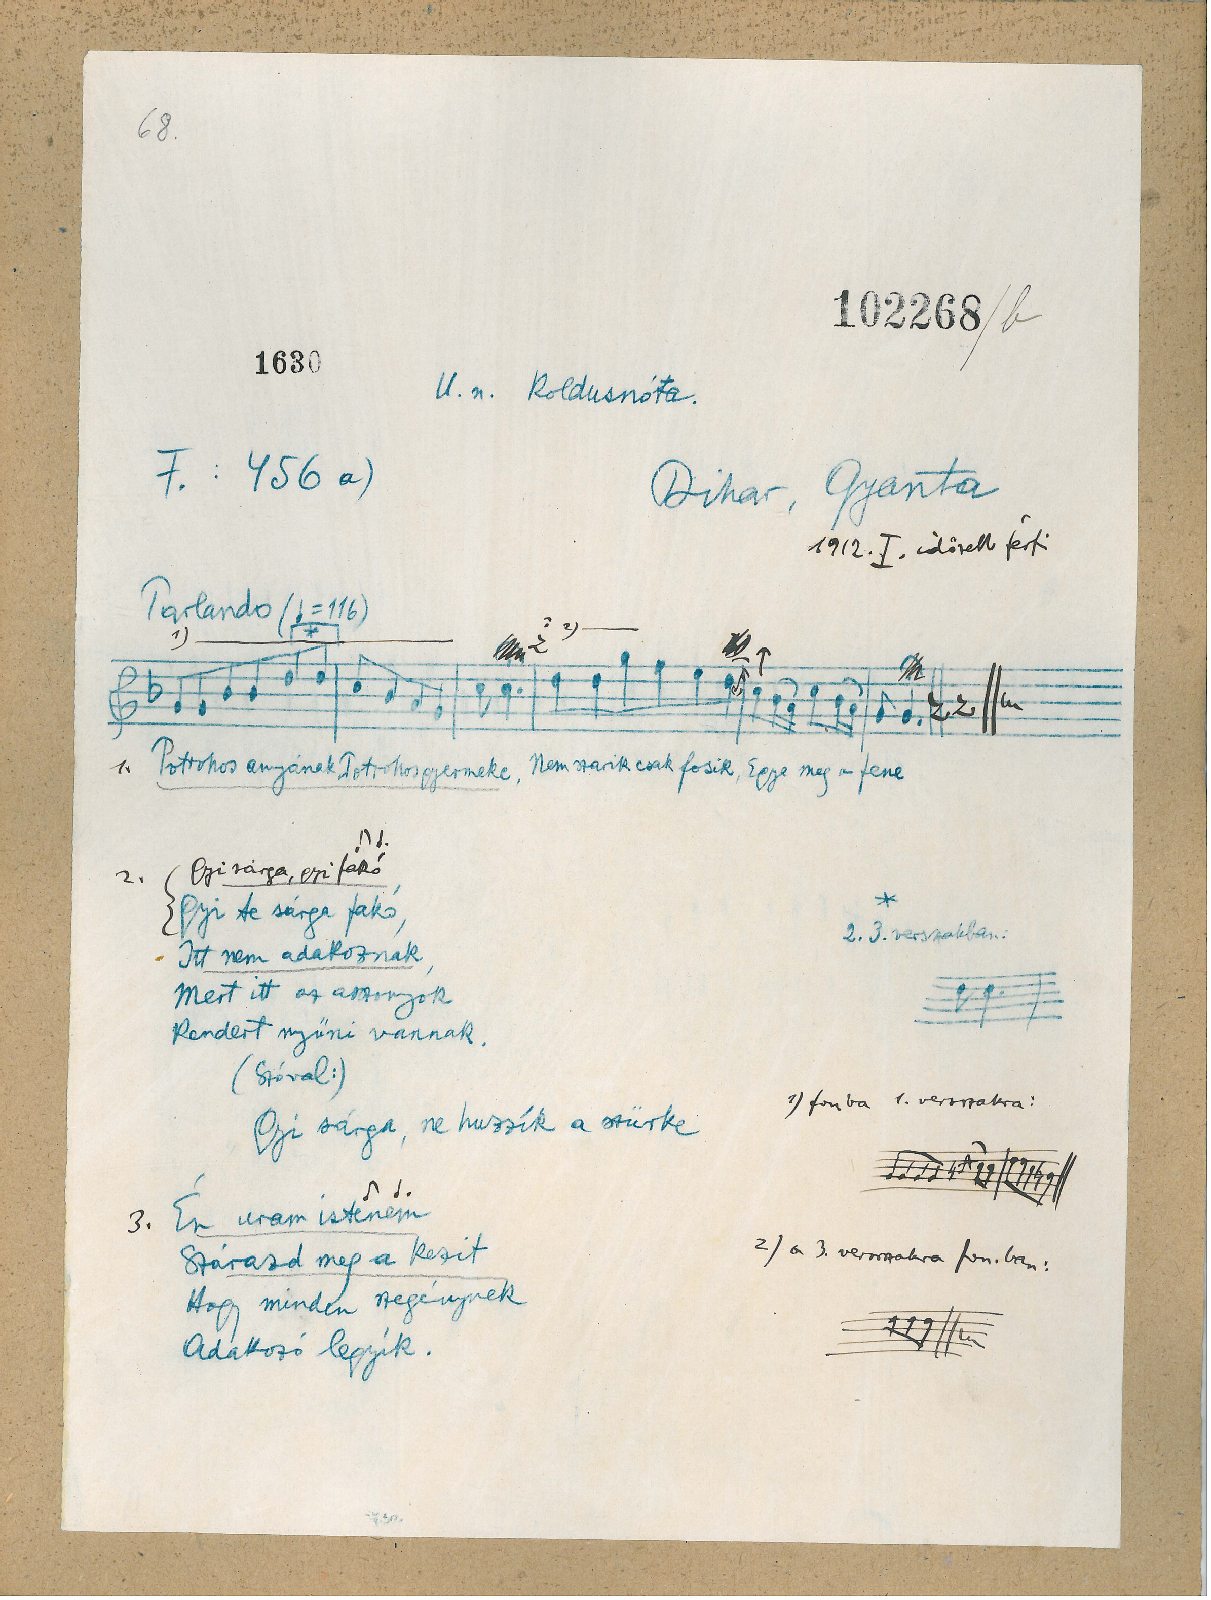 68.
102268/b
1630
U. n. Koldusnóta.
F. : 456 a)
Bihar, Gyanta
1912. I. idősebb férfi
Parlando (♩=116)
1) * 2)
1. Potrohos anyának, Potrohos gyermeke, Nem szarik csak fosik, Egye meg a fene
2. Gyi sárga, gyi fakó
Gyi te sárga fakó,
Itt nem adakoznak,
Mert itt az asszonyok
Kendert nyűni vannak.
(Szóval:)
Gyi sárga, ne huzzík a szürke
3. Én uram istenem
Szárazd meg a kezit
Hogy minden szegénynek
Adakozó legyík.
*
2. 3. versszakban:
1) fonba 1. versszakra:
2) a 3. versszakra fon.ban: